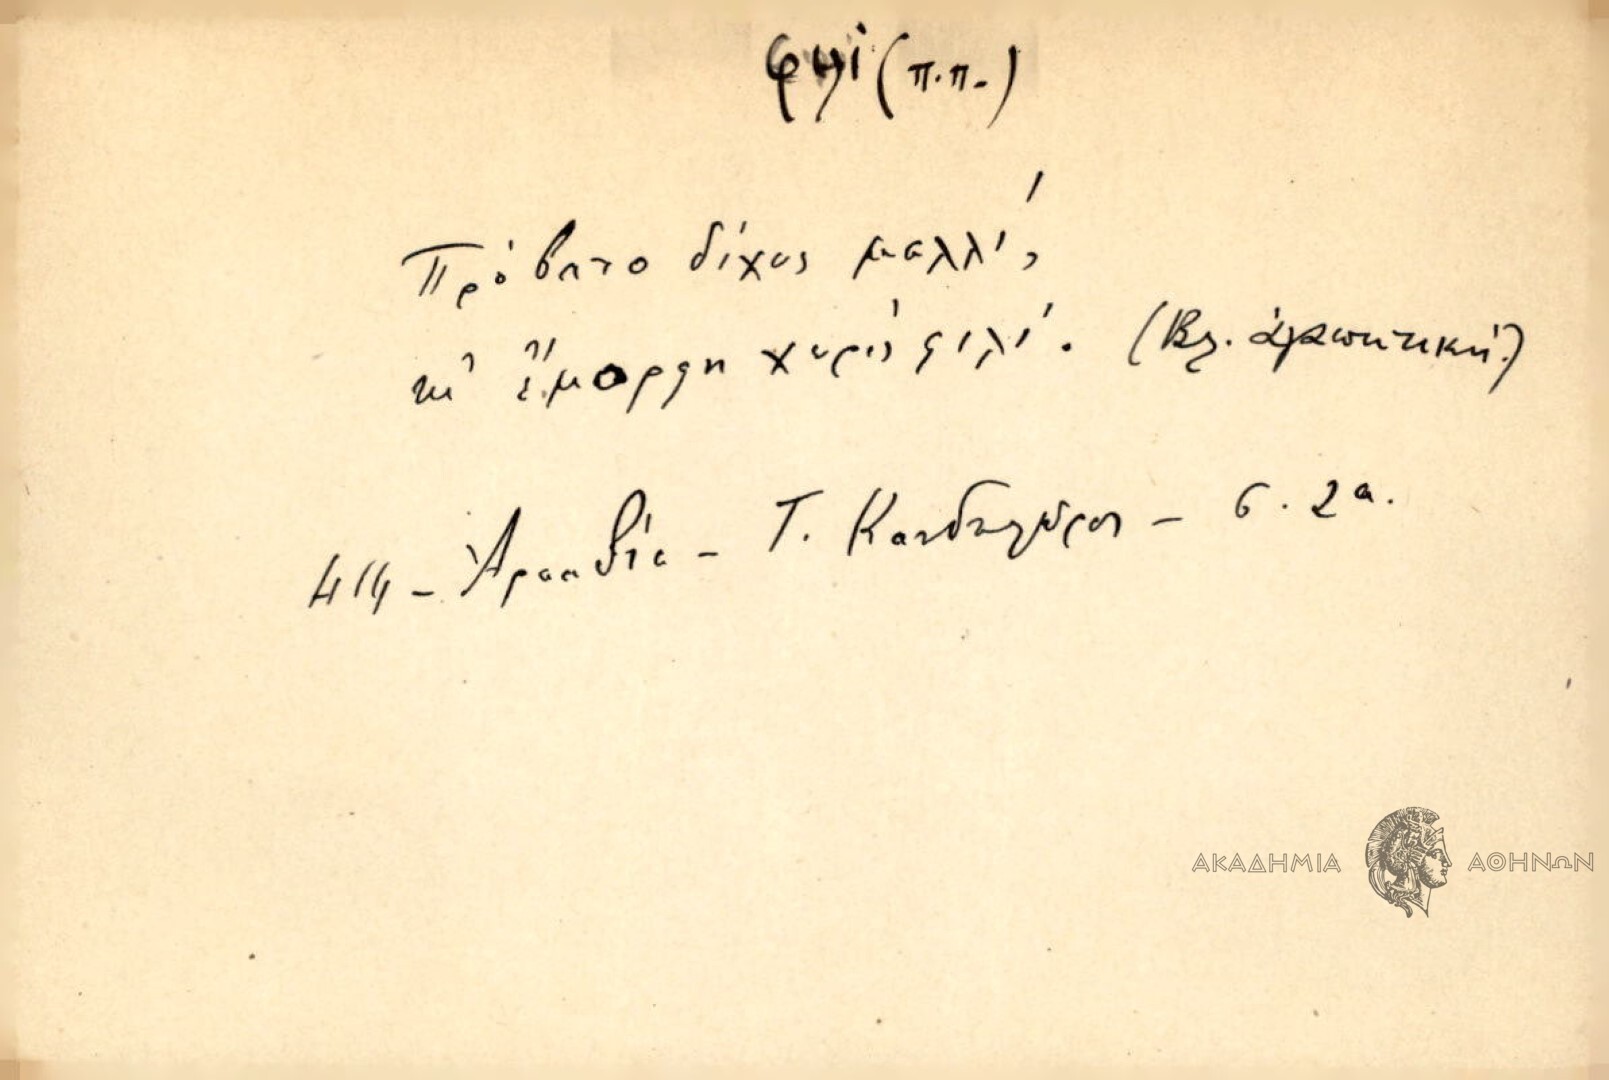 φιλί (π.π.)
Πρόβατο δίχως μαλλί,
κι' ἔμορφη χωρίς φιλί. (Βλ. ἀγαπητική)
414 - Ἀρκαδία - Τ. Κανδηλῶρος - σ. 2α.
ΑΚΑΔΗΜΙΑ ΑΘΗΝΩΝ